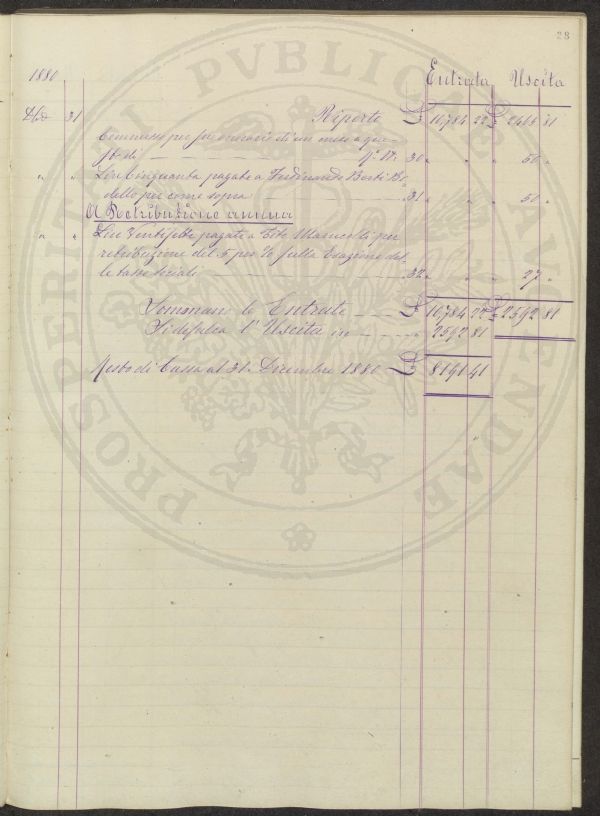 28
1880 Entrata Uscita
Dbre 31 Riporto £ 10,784 22 £ 2465 81
Commesso per suo onorario di un mese a que-
st dì N. 30 " " " 50 "
" " Lire Cinquanta pagate a Ferdinando Berti Bi
dello per come sopra 31 " " " 50 "
A Retribuzione annua
" " Lire Ventisette pagate a Tito Marucelli per
retribuzione del 5 per % sulla Esazione del
le tasse sociali 32 " " " 27 "
Sommano le Entrate £ 10,784 22 £ 2592 81
Si defalca l'Uscita in 2592 81
Resto di Cassa al 31. Dicembre 1880 £ 8191 41
PROSPERITATI PVBLICAE AVGENDAE